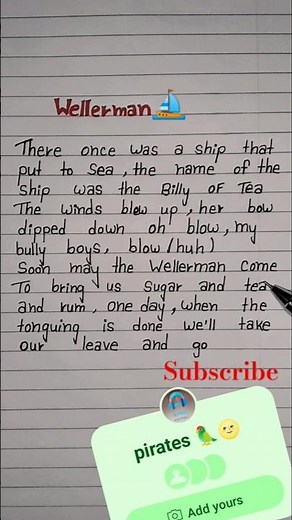 Wellerman
There once was a ship that
put to Sea, the name of the
ship was the Billy of Tea
The winds blow up, her bow
dipped down oh blow, my
bully boys, blow (huh)
Soon may the Wellerman come
To bring us sugar and tea
and rum, one day, when the
tonguing is done we'll take
our leave and go
Subscribe
pirates 🦜🌝
Add yours